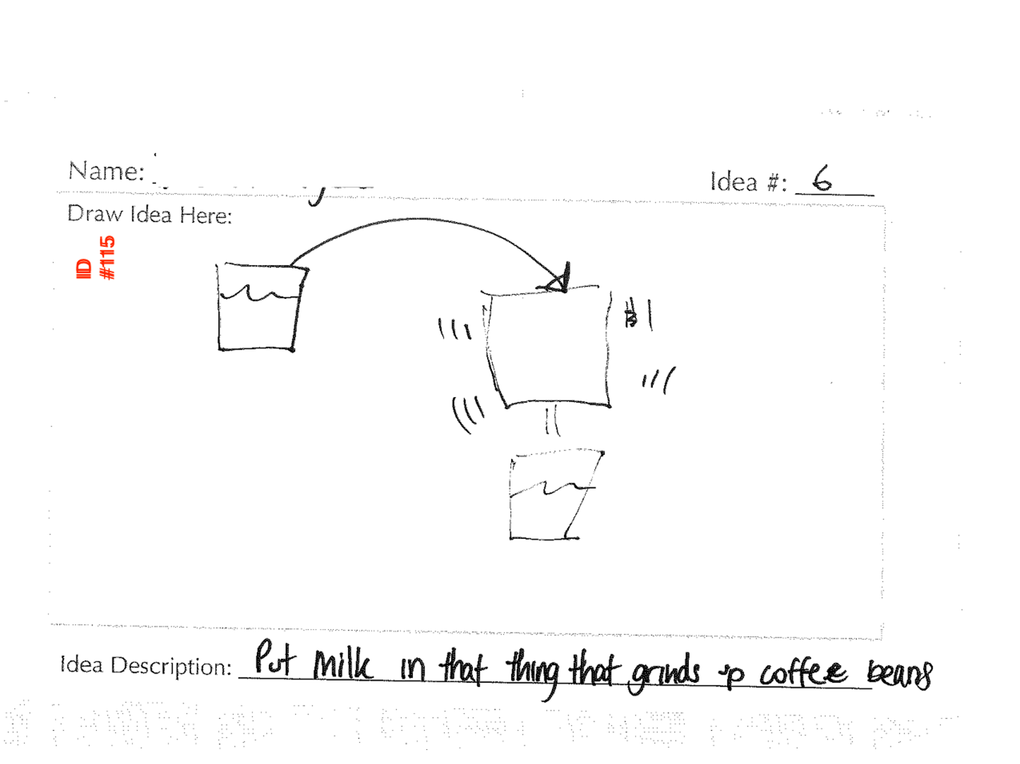 Name:
Idea #: 6
Draw Idea Here:
IID
#115
Idea Description: Put milk in that thing that grinds up coffee beans